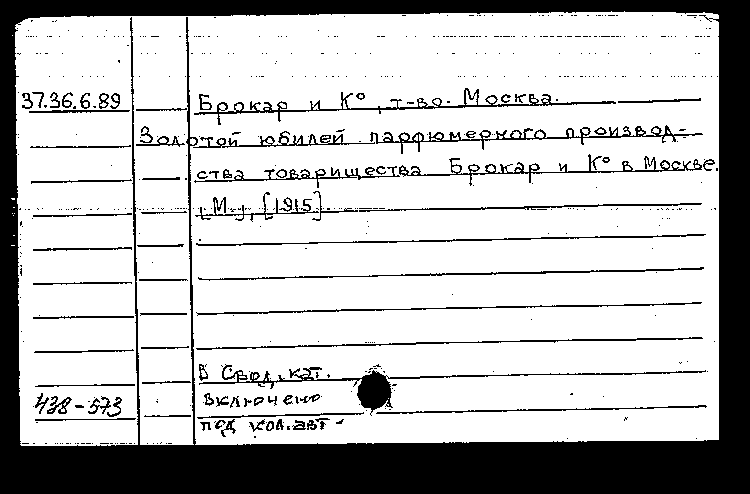 37.36.6.89 Брокар и К°, т-во. Москва.
Золотой юбилей парфюмерного производ-
ства товарищества Брокар и К° в Москве.
[М.], [1915].
В Свод. кат.
438-573 включено
под кол. авт-